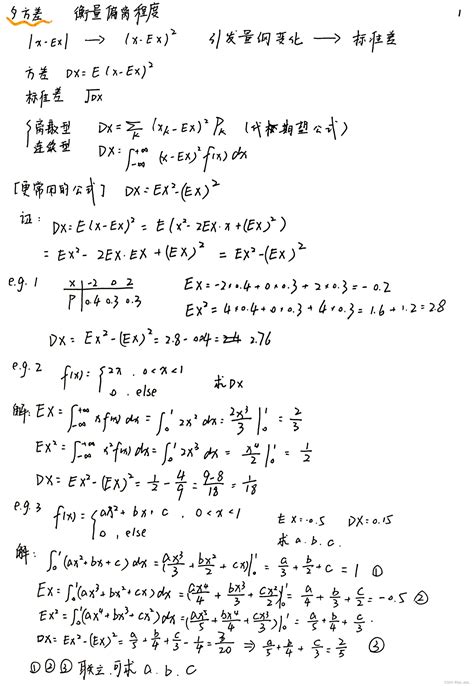 1
方差 衡量偏离程度
|x-EX| → (x-EX)² 引发量纲变化 → 标准差
方差 DX=E(x-EX)²
标准差 √DX
离散型 DX=∑ₖ(xₖ-EX)²Pₖ (代标期望公式)
连续型 DX=∫_{-∞}^{+∞}(x-EX)²f(x)dx
[更常用的公式] DX=EX²-(EX)²
证: DX=E(x-EX)²=E(x²-2EX·x+(EX)²)
=EX²-2EX·EX+(EX)²=EX²-(EX)²
e.g.1 x -2 0 2 EX=-2×0.4+0×0.3+2×0.3=-0.2
P 0.4 0.3 0.3 EX²=4×0.4+0×0.3+4×0.3=1.6+1.2=2.8
DX=EX²-(EX)²=2.8-0.04= 2.76
e.g.2 f(x)={2x, 0<x<1 求DX
0, else
解: EX=∫_{-∞}^{+∞}xf(x)dx=∫₀¹2x²dx=2x³/3|₀¹=2/3
EX²=∫_{-∞}^{+∞}x²f(x)dx=∫₀¹2x³dx=x⁴/2|₀¹=1/2
DX=EX²-(EX)²=1/2-4/9=(9-8)/18=1/18
e.g.3 f(x)={ax²+bx+c, 0<x<1 EX=-0.5 DX=0.15
0, else 求a.b.c.
解: ∫₀¹(ax²+bx+c)dx=(ax³/3+bx²/2+cx)|₀¹=a/3+b/2+c=1 ①
EX=∫₀¹(ax³+bx²+cx)dx=(ax⁴/4+bx³/3+cx²/2)|₀¹=a/4+b/3+c/2=-0.5 ②
EX²=∫₀¹(ax⁴+bx³+cx²)dx=(ax⁵/5+bx⁴/4+cx³/3)|₀¹=a/5+b/4+c/3.
DX=EX²-(EX)²=a/5+b/4+c/3-1/4=3/20 ⇒ a/5+b/4+c/3=2/5 ③
①②③联立,可求a.b.c